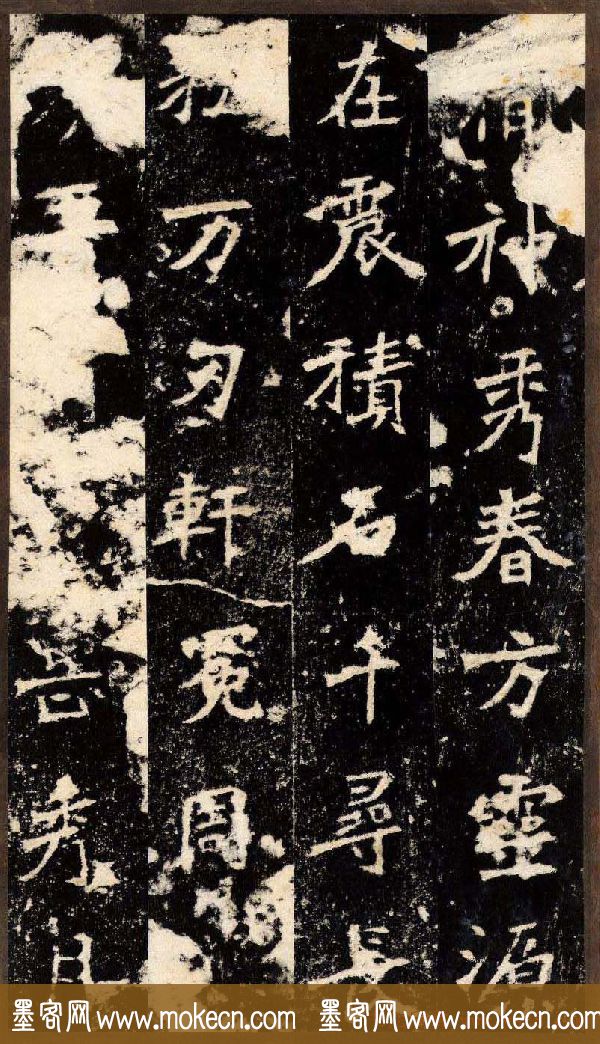 神秀春方靈源
在震積石千尋長
万刃軒冕周
秀
墨客网 www.mokecn.com 墨客网 www.mokecn.com